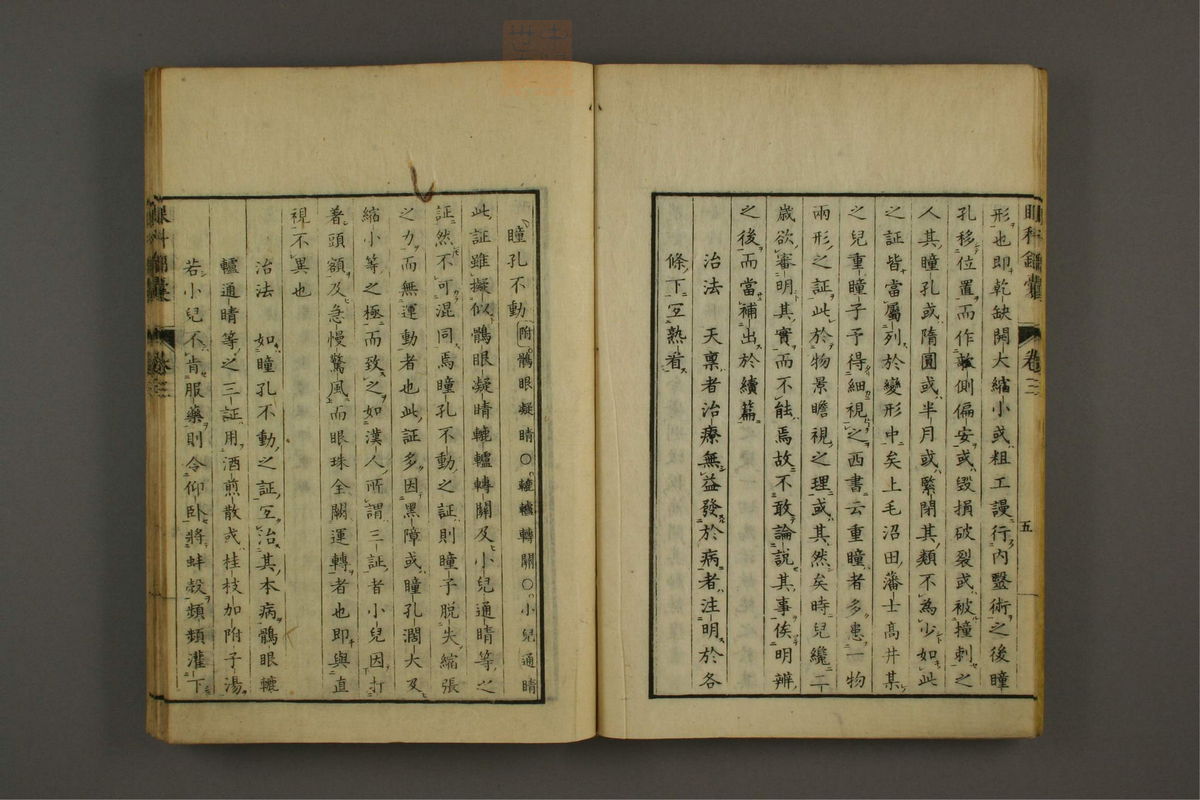 眼科錦囊 卷三 五
形也即乾缺開大縮小或粗工謾行內翳術之後瞳
孔移位置而作欹側偏安或毀損破裂或被撞刺之
人其瞳孔或隋圓或半月或緊閉其類不為少如此
之証皆當屬列於變形中矣上毛沼田藩士高井某
之兒重瞳子予得細視之西書云重瞳者多患一物
兩形之証此於物景瞻視之理或其然矣時兒纔二
歲欲審明其實而不能焉故不敢論說其事俟明辨
之後而當補出於續篇
治法 天禀者治療無益發於病者注明於各
條下互熟看
瞳孔不動 附鶻眼凝睛○轆轤轉關○小兒通睛
此証雖擬似鶻眼凝睛轆轤轉關及小兒通睛等之
証然不可混同焉瞳孔不動之証則瞳子脫失縮張
之力而無運動者也此証多因黑障或瞳孔濶大及
縮小等之極而致之如漢人所謂三証者小兒因打
著頭額及急慢驚風而眼珠全關運轉者也即與直
視不異也
治法 如瞳孔不動之証互治其本病鶻眼轆
轤通睛等之三証用酒煎散或桂枝加附子湯
若小兒不肯服藥則令仰卧將蚌殼類頻灌下
眼科錦囊 卷三